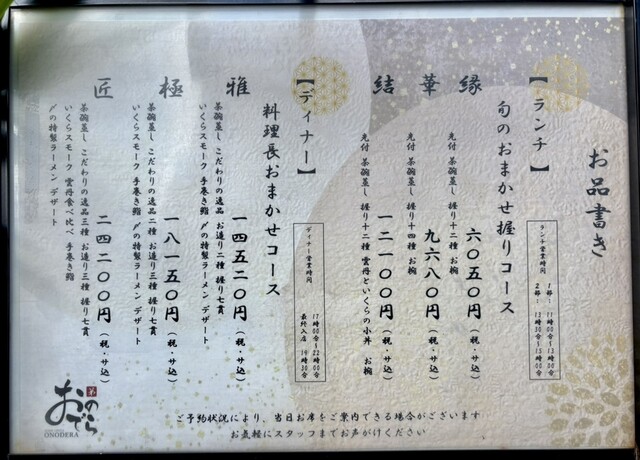 お品書き
【ランチ】
ランチ営業時間
1部: 11時00分〜13時00分
2部: 13時30分〜15時00分
旬のおまかせ握りコース
縁
先付 茶碗蒸し 握り十二種 お椀
六〇五〇円(税・サ込)
華
先付 茶碗蒸し 握り十四種 お椀
九六八〇円(税・サ込)
結
先付 茶碗蒸し 握り十二種 雲丹といくらの小丼 お椀
一二一〇〇円(税・サ込)
【ディナー】
ディナー営業時間
17時00分〜22時00分
最終入店 19時30分
料理長おまかせコース
雅
茶碗蒸し こだわりの逸品 お造り二種 握り七貫
いくらスモーク 手巻き鮨 〆の特製ラーメン デザート
一四五二〇円(税・サ込)
極
茶碗蒸し こだわりの逸品二種 お造り三種 握り七貫
いくらスモーク 手巻き鮨 〆の特製ラーメン デザート
一八一五〇円(税・サ込)
匠
茶碗蒸し こだわりの逸品三種 お造り三種 握り七貫
いくらスモーク 雲丹食べ比べ 手巻き鮨
〆の特製ラーメン デザート
二四二〇〇円(税・サ込)
ご予約状況により、当日お席をご案内できる場合がございます
お気軽にスタッフまでお声がけください
おのでら
ONODERA